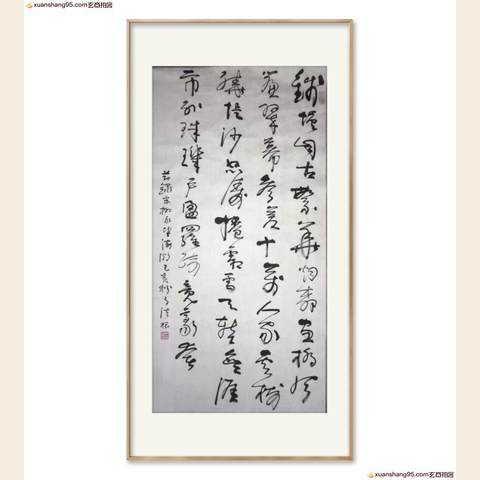 xuanshang95.com
錢塘自古繁華烟柳畫橋風
簾翠幕参差十萬人家雲樹
繞堤沙怒濤捲霜雪天塹無涯
市列珠璣戶盈羅綺竞豪奢
節錄宋柳永望海潮己亥秋月
xuanshang95.com